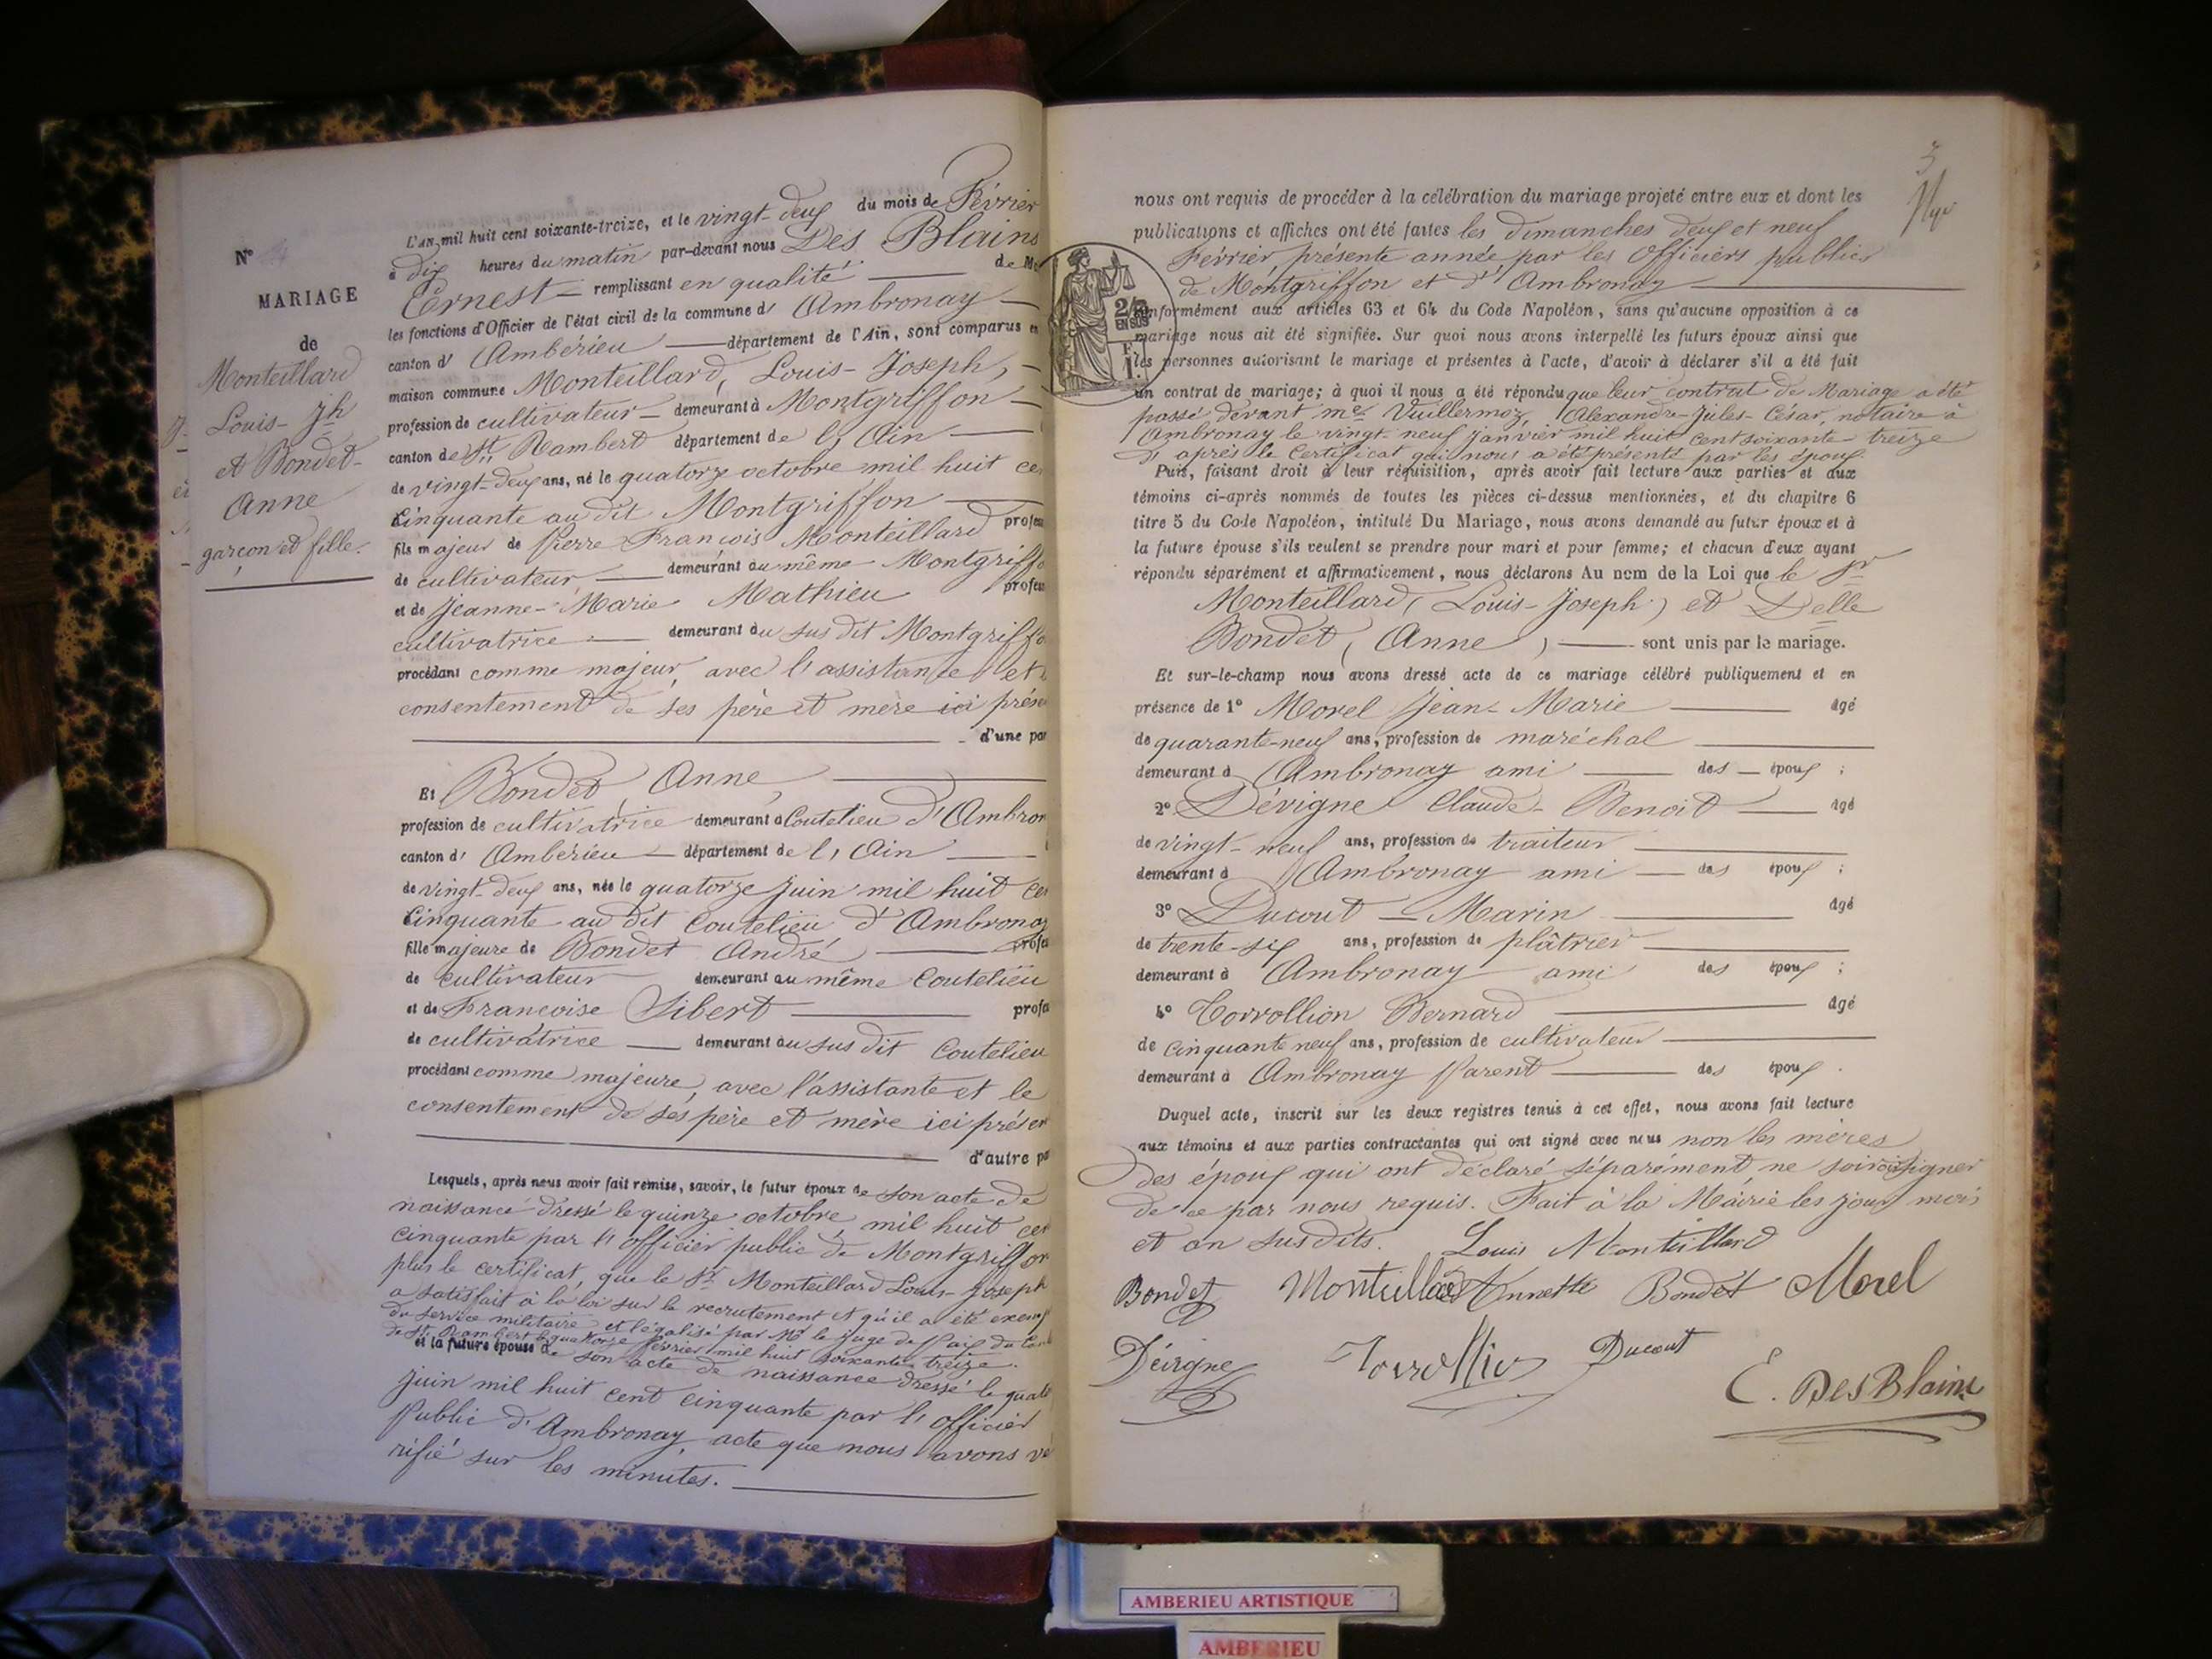 N°
MARIAGE
de
Monteillard
Louis-Jh
et Bondet
Anne
garçon et fille.
L'an mil huit cent soixante-treize, et le vingt-deux du mois de Février
à dix heures du matin par-devant nous Des Blains
Ernest — remplissant en qualité — de M
les fonctions d'Officier de l'état civil de la commune d' Ambronay —
canton d' Ambérieu — département de l'Ain, sont comparus en
maison commune Monteillard, Louis-Joseph, —
profession de cultivateur — demeurant à Montgriffon —
canton de St Rambert département de l'Ain —
de vingt-deux ans, né le quatorze octobre mil huit ce
Cinquante au dit Montgriffon —
fils majeur de Pierre François Monteillard profes
de cultivateur — demeurant au même Montgriffo
et de Jeanne-Marie Mathieu profes
cultivatrice — demeurant au sus dit Montgriffo
procédant comme majeur, avec l'assistance et
consentement de ses père et mère ici prése
— d'une par
Et Bondet Anne, —
profession de cultivatrice demeurant à Coutelieu d'Ambron
canton d' Ambérieu — département de l'Ain —
de vingt-deux ans, née le quatorze juin mil huit cen
Cinquante au dit Coutelieu d'Ambronay
fille majeure de Bondet André — profes
de cultivateur demeurant au même Coutelieu
et de Francoise Sibert — profes
de cultivatrice — demeurant au sus dit Coutelieu
procédant comme majeure, avec l'assistante et le
consentement de ses père et mère ici présen
— d'autre pa
Lesquels, après nous avoir fait remise, savoir, le futur époux de son acte de
naissance dressé le quinze octobre mil huit cen
cinquante par l'officier public de Montgriffon
plus le certificat, que le Sr Monteillard Louis-Joseph
a satisfait à la loi sur le recrutement et qu'il a été exemp
du service militaire et légalisé par Mr le juge de Paix du can
de St Rambert le quatorze février mil huit soixante treize.
et la future épouse de son acte de naissance dressé le quato
juin mil huit cent cinquante par l'officier
Public d'Ambronay, acte que nous avons vé
rifié sur les minutes. —
3
nous ont requis de procéder à la célébration du mariage projeté entre eux et dont les
publications et affiches ont été faites les dimanches deux et neuf
Février présente année par les Officiers publics
de Montgriffon et d'Ambronay —
2/10
EN SUS
conformément aux articles 63 et 64 du Code Napoléon, sans qu'aucune opposition à ce
mariage nous ait été signifiée. Sur quoi nous avons interpellé les futurs époux ainsi que
les personnes autorisant le mariage et présentes à l'acte, d'avoir à déclarer s'il a été fait
un contrat de mariage; à quoi il nous a été répondu que leur contrat de Mariage a été
passé devant me Vuillermoz, Alexandre-Jules-César, notaire à
Ambronay le vingt-neuf janvier mil huit cent soixante-treize
d'après le Certificat qui nous a été présenté par les époux.
Puis, faisant droit à leur réquisition, après avoir fait lecture aux parties et aux
témoins ci-après nommés de toutes les pièces ci-dessus mentionnées, et du chapitre 6
titre 5 du Code Napoléon, intitulé Du Mariage, nous avons demandé au futur époux et à
la future épouse s'ils veulent se prendre pour mari et pour femme; et chacun d'eux ayant
répondu séparément et affirmativement, nous déclarons Au nom de la Loi que le Sr
Monteillard (Louis-Joseph) et Delle
Bondet (Anne) — sont unis par le mariage.
Et sur-le-champ nous avons dressé acte de ce mariage célébré publiquement et en
présence de 1° Morel Jean-Marie — âgé
de quarante-neuf ans, profession de maréchal —
demeurant à Ambronay ami — des — époux ;
2° Dévigne Claude-Benoit — âgé
de vingt-neuf ans, profession de traiteur —
demeurant à Ambronay ami — des époux ;
3° Ducout — Marin — âgé
de trente-six ans, profession de plâtrier —
demeurant à Ambronay ami des époux ;
4° Corrollion Bernard — âgé
de cinquante neuf ans, profession de cultivateur —
demeurant à Ambronay Parent — des époux.
Duquel acte, inscrit sur les deux registres tenus à cet effet, nous avons fait lecture
aux témoins et aux parties contractantes qui ont signé avec nous non les mères
des époux qui ont déclaré séparément ne savoir signer
de ce par nous requis. Fait à la Mairie les jour mois
et an susdits. Louis Monteillard
Bondet Monteillard Annette Bondet Morel
Dévigne Corrollion Ducout
E. DesBlains
AMBERIEU ARTISTIQUE
AMBERIEU